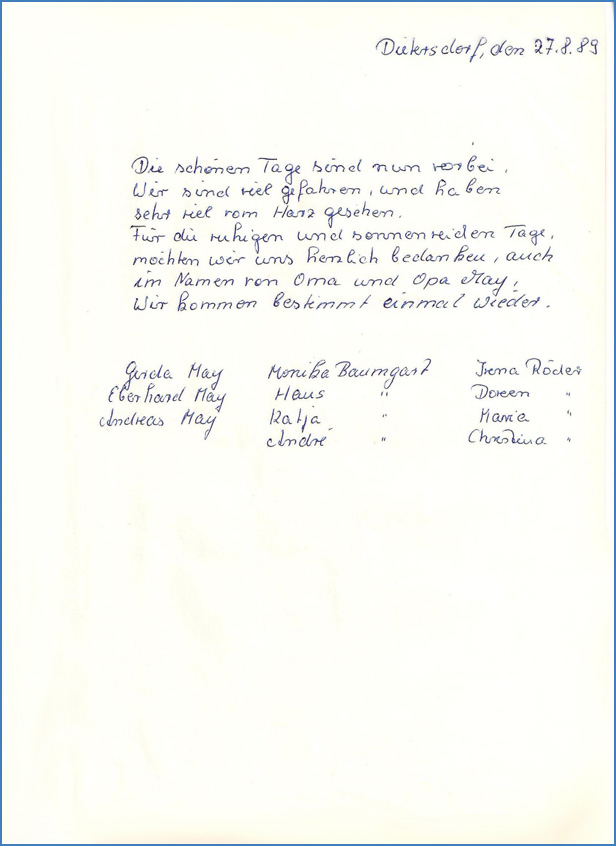 Dietersdorf, den 27.8.89
Die schönen Tage sind nun vorbei.
Wir sind viel gefahren, und haben
sehr viel vom Harz gesehen.
Für die ruhigen und sonnenreichen Tage,
möchten wir uns herzlich bedanken, auch
im Namen von Oma und Opa May,
Wir kommen bestimmt einmal wieder.
Gerda May Monika Baumgart Irena Röder
Eberhard May Haus " Doreen "
Andreas May Katja " Maria "
André " Christina "